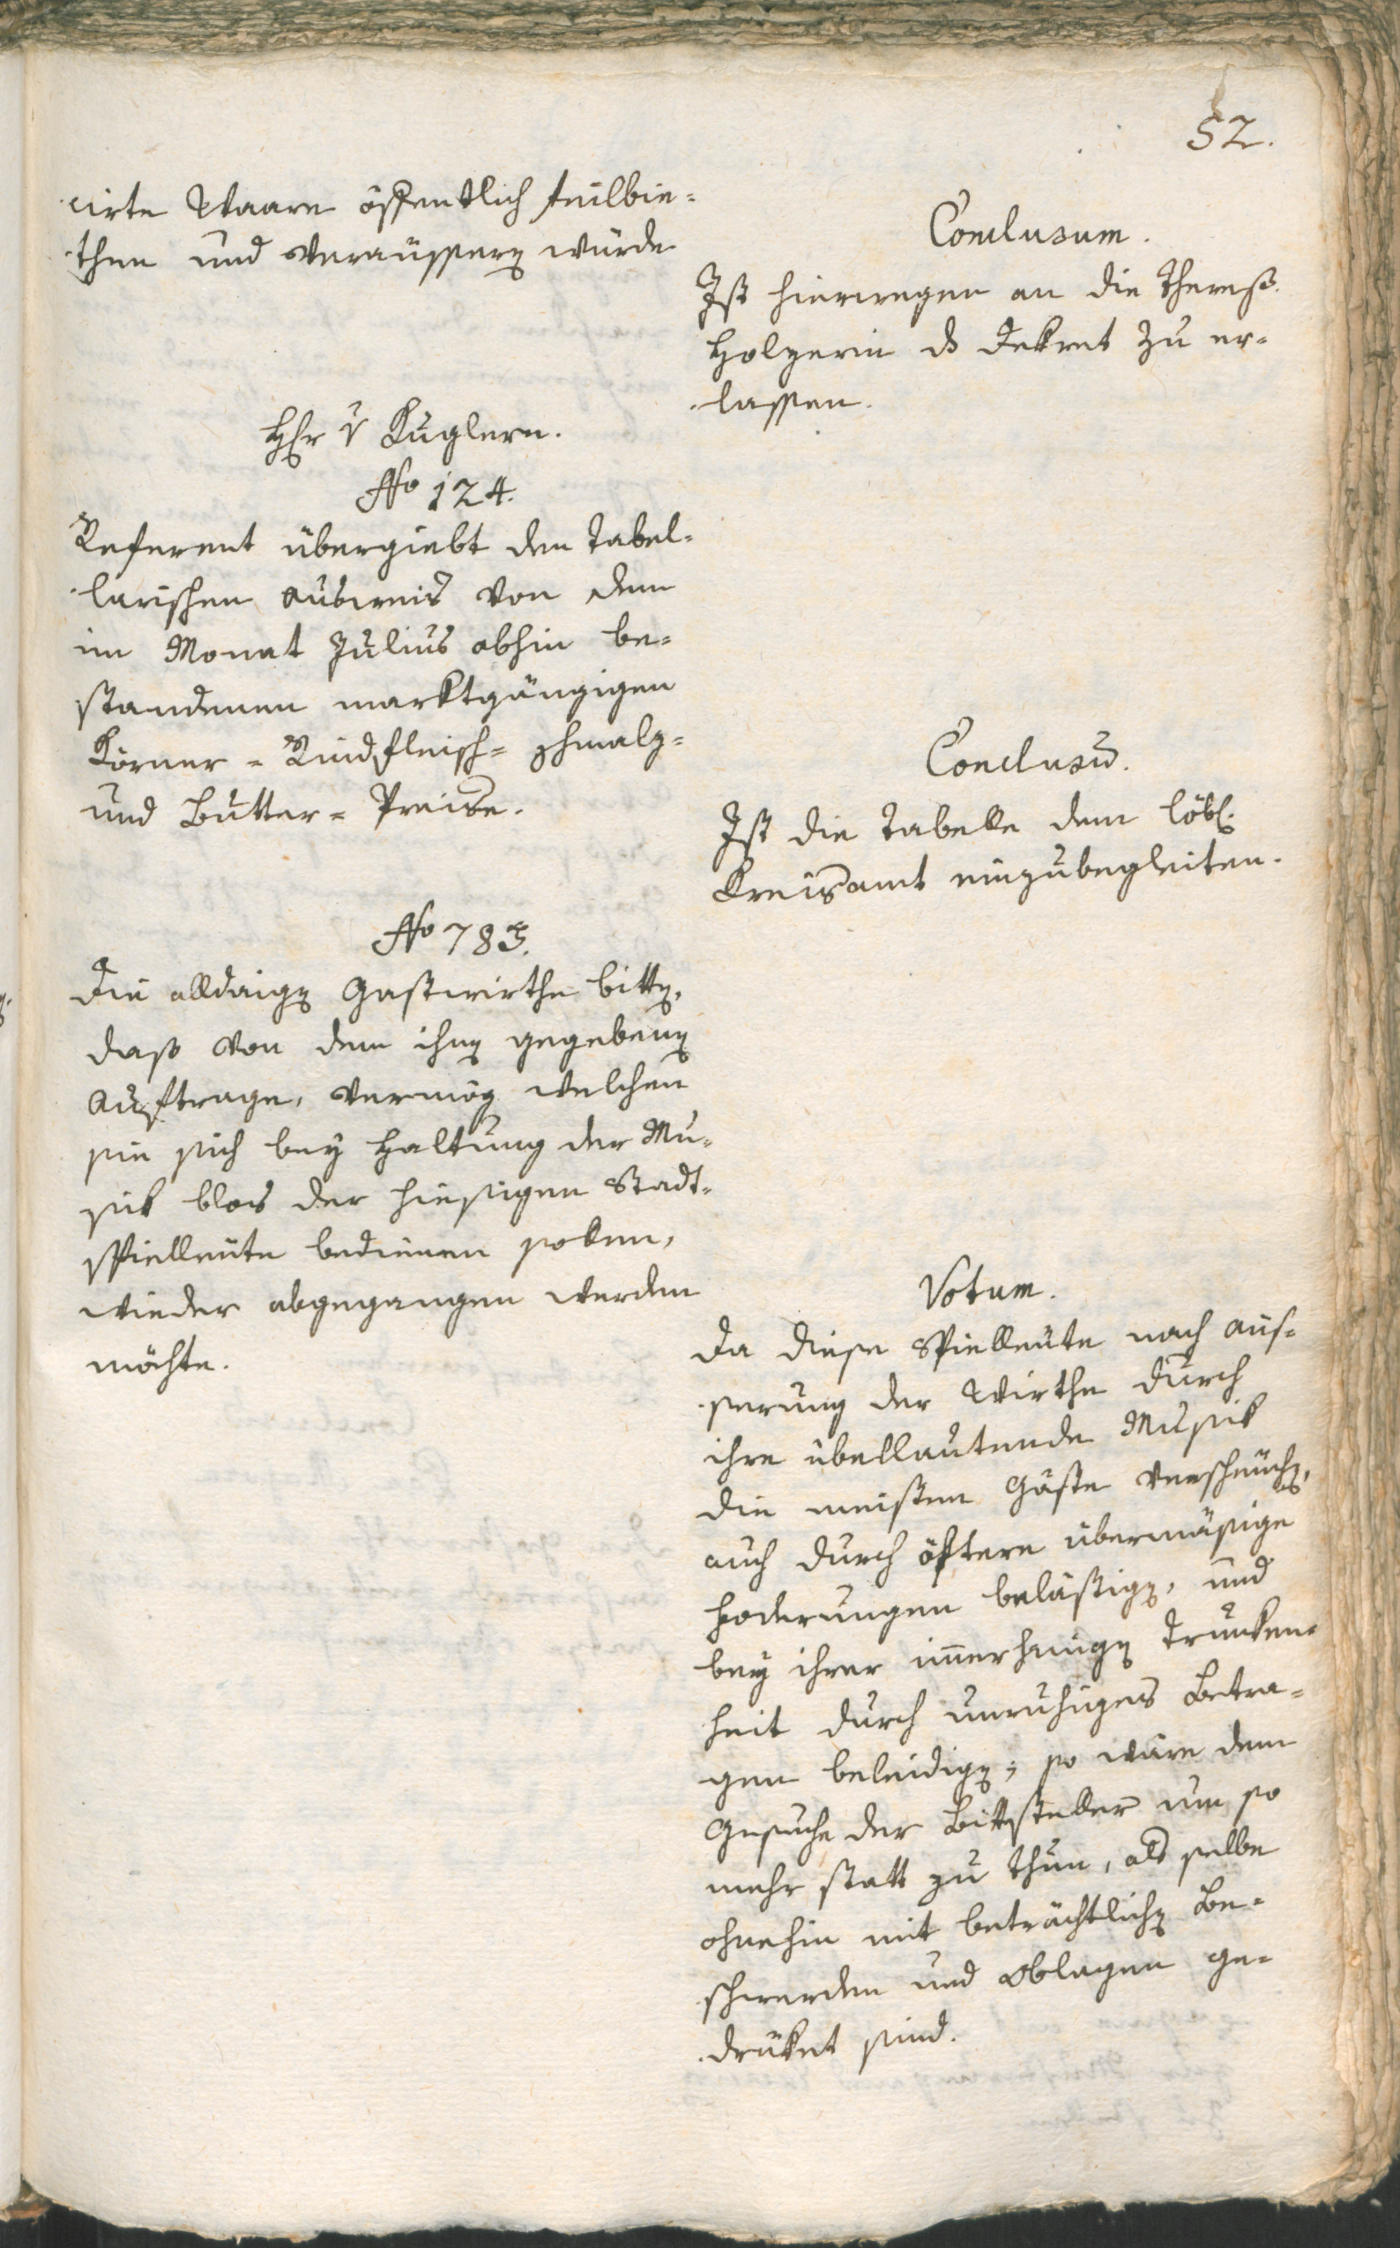 52.
cirte Waare öffentlich feilbie-
then und veräussern würde
Conclusum.
Ist hierwegen an die Theres.
Holzerin ds Dekret zu er-
lassen.
Hr v Kuglern.
No 124.
Referent übergiebt den Tabel-
larischen Ausweis von den
im Monat Julius abhin be-
standenen marktgängigen
Körner- Rindfleisch- schmalz-
und Butter- Preise.
Conclusum.
Ist die Tabelle dem löbl.
Kreisamt einzubegleiten.
No 783.
Die alldaigen Gastwirthe bitten,
dass von dem ihnen gegebenen
Auftrage, vermög welchen
sie sich bey Haltung der Mu-
sik blos der hiesigen Stadt-
spielleute bedienen sollen,
wieder abgegangen werden
möchte.
Votum.
Da diese Spielleute nach äus-
serung der Wirthe durch
ihre übellautende Musik
die meisten Gäste verscheuchen,
auch durch öftere übermäsige
Foderungen belästigen, und
bey ihrer immerhinigen Trunken-
heit durch unruhiges Betra-
gen beleidigen; so wäre dem
Gesuche der Bittsteller um so
mehr statt zu thun, als selbe
ohnehin mit beträchtlichen Be-
schwerden und Oblagen ge-
drüket sind.